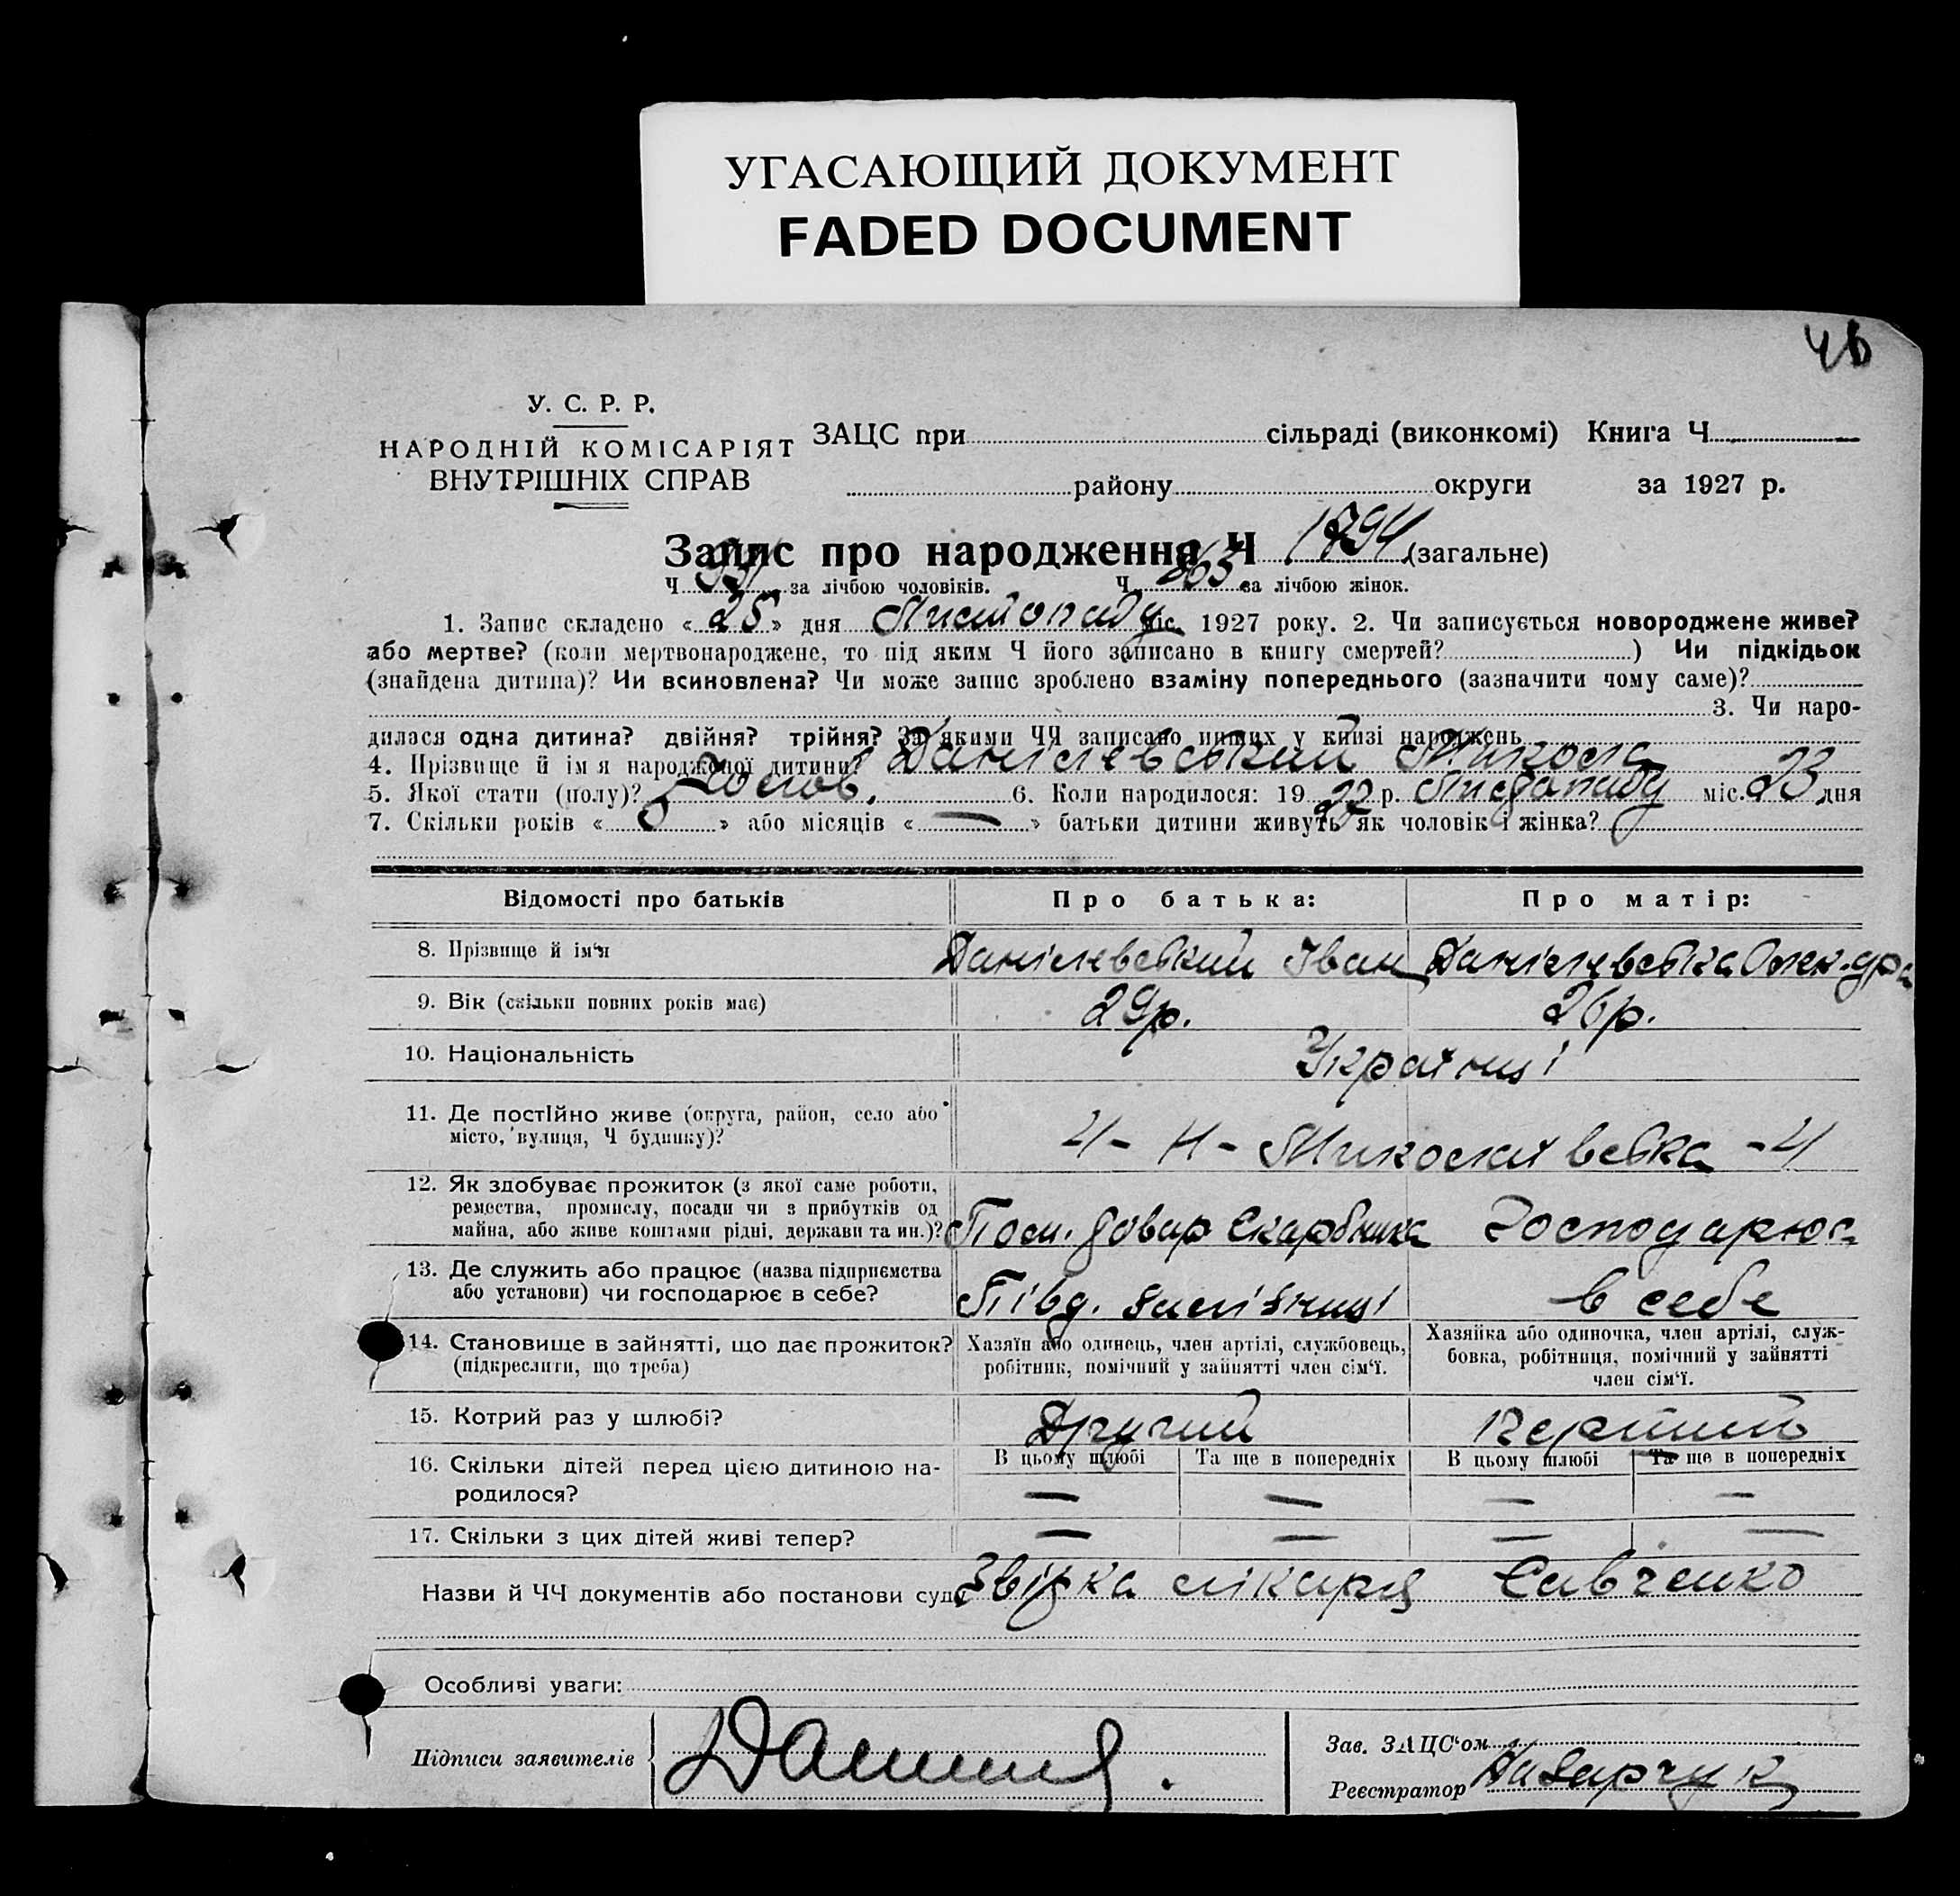 УГАСАЮЩИЙ ДОКУМЕНТ
FADED DOCUMENT
У. С. Р. Р.
НАРОДНІЙ КОМІСАРІЯТ
ВНУТРІШНІХ СПРАВ
ЗАЦС при сільраді (виконкомі) Книга Ч
району округи за 1927 р.
Запис про народження Ч 1794 (загальне)
Ч за лічбою чоловіків. Ч 863 за лічбою жінок.
1. Запис складено « 25 » дня Листопаду міс. 1927 року. 2. Чи записується новороджене живе?
або мертве? (коли мертвонароджене, то під яким Ч його записано в книгу смертей? ) Чи підкідьок
(знайдена дитина)? Чи всиновлена? Чи може запис зроблено взаміну попереднього (зазначити чому саме)?
3. Чи наро-
дилася одна дитина? двійня? трійня? За якими ЧЧ записано инших у книзі народжень
4. Прізвище й ім я народженої дитини? Данілевський Микола
5. Якої стати (полу)? Чолов. 6. Коли народилося: 19 27 р. Листопаду міс. 23 дня
7. Скільки років « » або місяців « — » батьки дитини живуть як чоловік і жінка?
Відомості про батьків Про батька: Про матір:
8. Прізвище й ім'я Данілевський Іван Данілевська Олек-дра
9. Вік (скільки повних років має) 29р. 26р.
10. Національність Українці
11. Де постійно живе (округа, район, село або
місто, вулиця, Ч будинку)? 4 - Н - Миколаївська - 4
12. Як здобуває прожиток (з якої саме роботи,
ремества, промислу, посади чи з прибутків од
майна, або живе коштами рідні, держави та ин.)? Пом. товар Скарбника Господарює
13. Де служить або працює (назва підприємства
або установи) чи господарює в себе? Півд. залізниці в себе
14. Становище в зайнятті, що дає прожиток?
(підкреслити, що треба)
Хазяїн або одинець, член артілі, службовець,
робітник, помічний у зайнятті член сім'ї.
Хазяйка або одиночка, член артілі, служ-
бовка, робітниця, помічний у зайнятті
член сім'ї.
15. Котрий раз у шлюбі? Другий Перший
16. Скільки дітей перед цією дитиною на-
родилося?
В цьому шлюбі Та ще в попередніх В цьому шлюбі Та ще в попередніх
— — — —
17. Скільки з цих дітей живі тепер? — — — —
Назви й ЧЧ документів або постанови суду Звідка лікаря Савченко
Особливі уваги:
Підписи заявителів
Зав. ЗАЦС'ом
Реєстратор